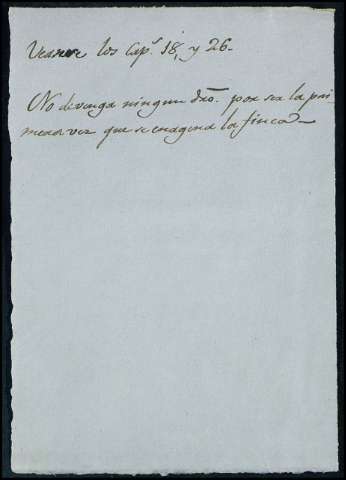 Veanse los Cap.s 18, y 26.
No devenga ningun dro. por ser la pri-
mera vez que se enagena la finca—